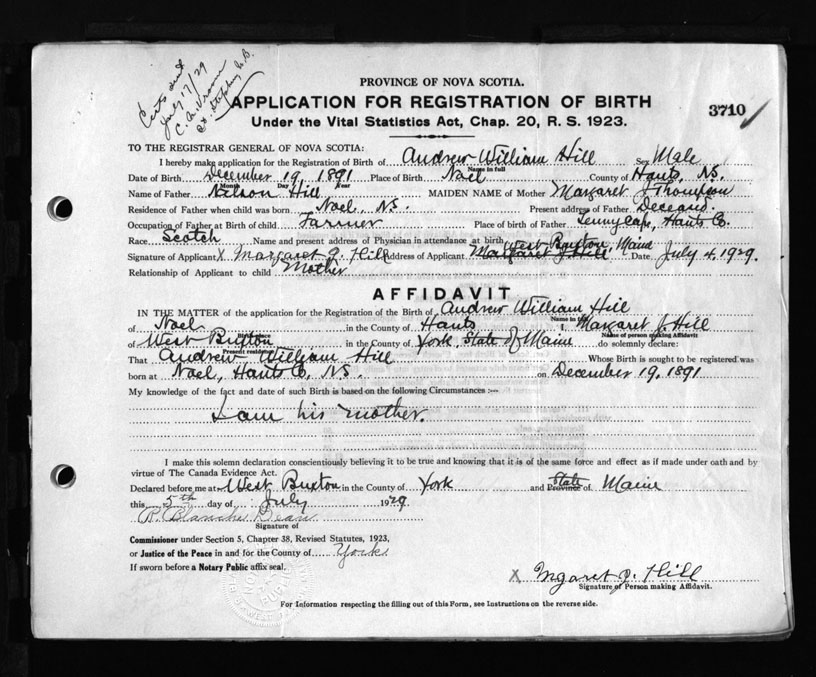 Certs sent
July 17/29
C. A. Vroom
St. Stephen N.B.
PROVINCE OF NOVA SCOTIA.
APPLICATION FOR REGISTRATION OF BIRTH
3710
Under the Vital Statistics Act, Chap. 20, R. S. 1923.
TO THE REGISTRAR GENERAL OF NOVA SCOTIA:
I hereby make application for the Registration of Birth of Andrew William Hill Sex Male
Name in full
Date of Birth December 19 1891 Place of Birth Noel County of Hants, N.S.
Month Day Year
Name of Father Neilson Hill MAIDEN NAME of Mother Margaret J Thompson
Residence of Father when child was born Noel, N.S. Present address of Father Deceased.
Occupation of Father at Birth of child Farmer Place of birth of Father Tennycape, Hants Co.
Race Scotch Name and present address of Physician in attendance at birth
West Buxton, Maine
Signature of Applicant X Margaret J. Hill Address of Applicant Margaret J. Hill Date July 4, 1929.
Relationship of Applicant to child Mother
AFFIDAVIT
IN THE MATTER of the application for the Registration of the Birth of Andrew William Hill
Name in full
of Noel in the County of Hants I, Margaret J. Hill
Birth place Name of person making Affidavit
of West Buxton in the County of York, State of Maine do solemnly declare:
Present residence
That Andrew William Hill Whose Birth is sought to be registered was
born at Noel, Hants Co, N.S. on December 19, 1891
My knowledge of the fact and date of such Birth is based on the following Circumstances :—
I am his mother.
I make this solemn declaration conscientiously believing it to be true and knowing that it is of the same force and effect as if made under oath and by
virtue of The Canada Evidence Act.
Declared before me at West Buxton in the County of York and Province State of Maine
this 5th day of July 1929
R. Blanche Bean
Signature of
Commissioner under Section 5, Chapter 38, Revised Statutes, 1923,
or Justice of the Peace in and for the County of York
If sworn before a Notary Public affix seal.
X Margaret J. Hill
Signature of Person making Affidavit.
For Information respecting the filling out of this Form, see Instructions on the reverse side.